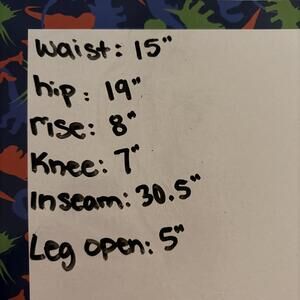 Waist: 15"
hip: 19"
rise: 8"
Knee: 7"
Inseam: 30.5"
Leg open: 5"